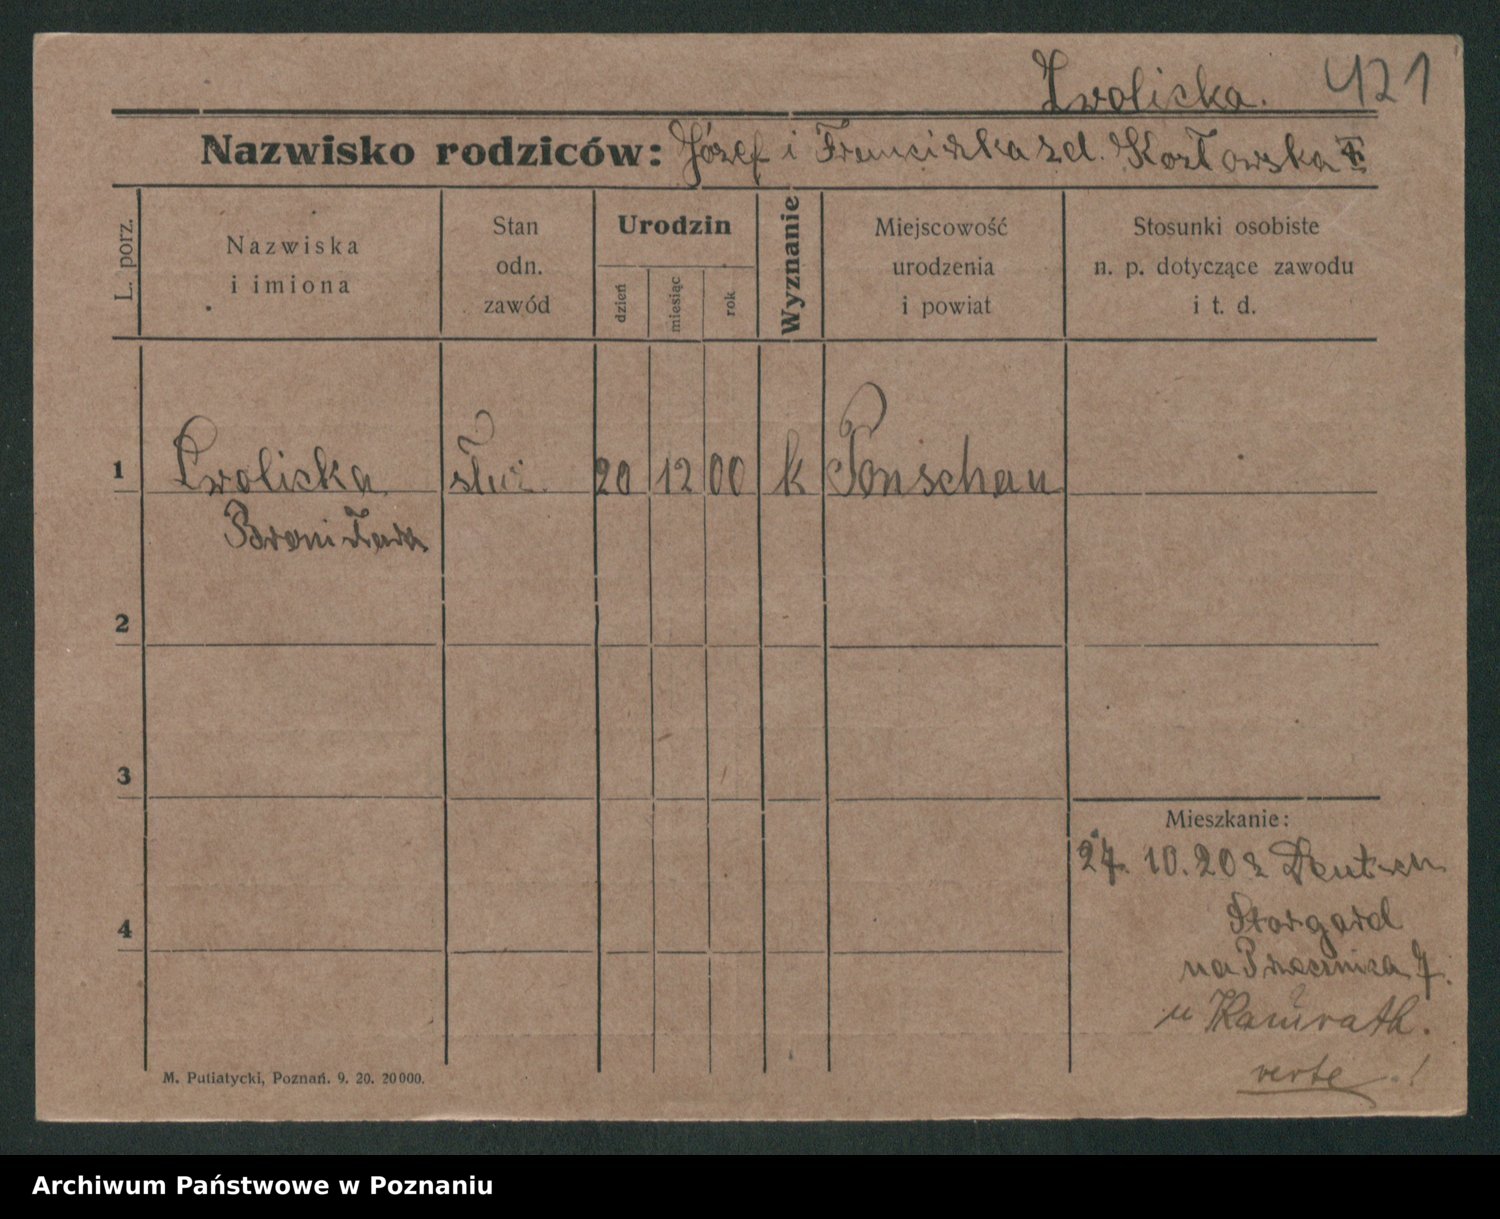 Zwolicka. 421
Nazwisko rodziców: Józef i Franciszka z d. Kozłowska
L. porz.
Nazwiska
i imiona
Stan
odn.
zawód
Urodzin
dzień
miesiąc
rok
Wyznanie
Miejscowość
urodzenia
i powiat
Stosunki osobiste
n. p. dotyczące zawodu
i t. d.
1 Zwolicka służ. 20 12 00 k Ponschau
Bronisława
2
3
4
Mieszkanie:
27. 10. 20 z Deutsch
Stargard
na 7.
u Kamrath.
verte.!
M. Putiatycki, Poznań. 9. 20. 20 000.
Archiwum Państwowe w Poznaniu